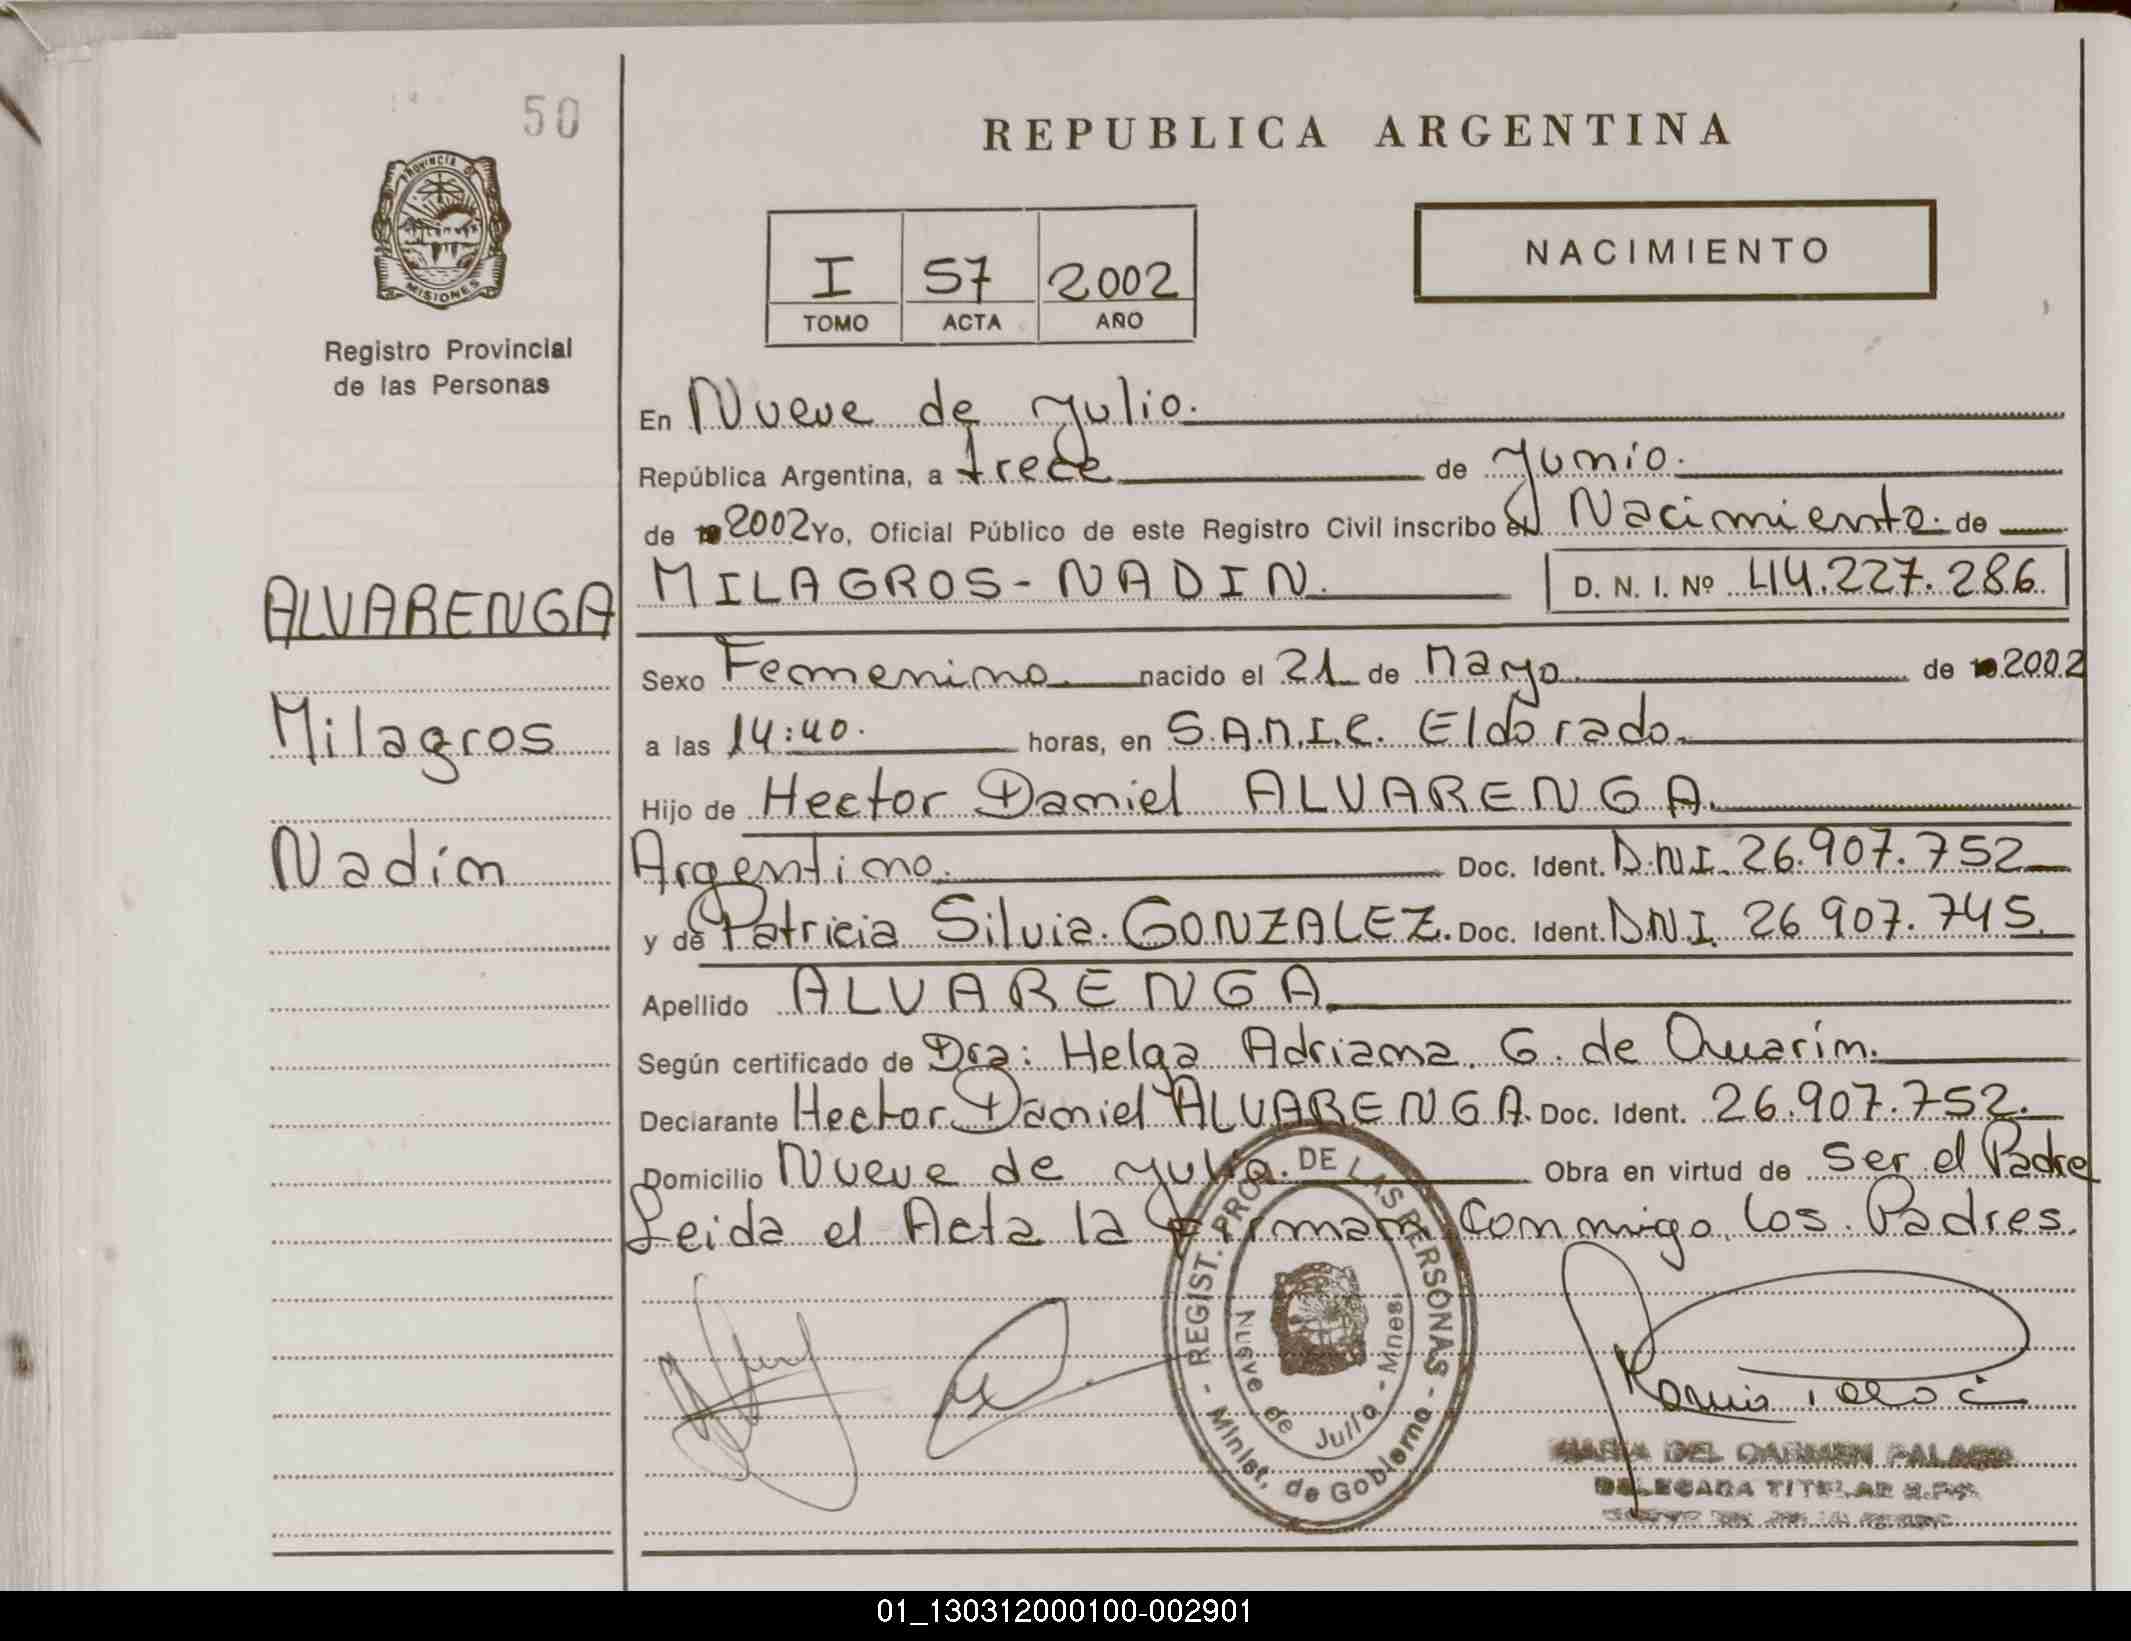 50
REPUBLICA ARGENTINA
PROVINCIA DE
MISIONES
Registro Provincial
de las Personas
I 57 2002
TOMO ACTA AÑO
NACIMIENTO
En Nueve de Julio.
República Argentina, a trece de Junio.
de 2002 Yo, Oficial Público de este Registro Civil inscribo el Nacimiento. de
MILAGROS-NADIN. D. N. I. Nº 44.227.286.
ALVARENGA
Milagros
Nadin
Sexo Femenino. nacido el 21 de Mayo. de 2002
a las 14:40. horas, en S.A.M.I.C. Eldorado.
Hijo de Hector Daniel ALVARENGA.
Argentino. Doc. Ident. D.N.I. 26.907.752
y de Patricia Silvia. GONZALEZ. Doc. Ident. D.N.I. 26 907.745.
Apellido ALVARENGA.
Según certificado de Dra: Helga Adriana. G. de
Declarante Hector Daniel ALVARENGA. Doc. Ident. 26.907.752.
Domicilio Nueve de Julio. Obra en virtud de ser el Padre
Leida el Acta la Firman Conmigo. Los. Padres.
- REGIST. PROV. DE LAS PERSONAS -
Minist. de Gobierno
Nueve de Julio - Mnes.
MARIA DEL CARMEN
DELEGADA TITULAR
01_130312000100-002901